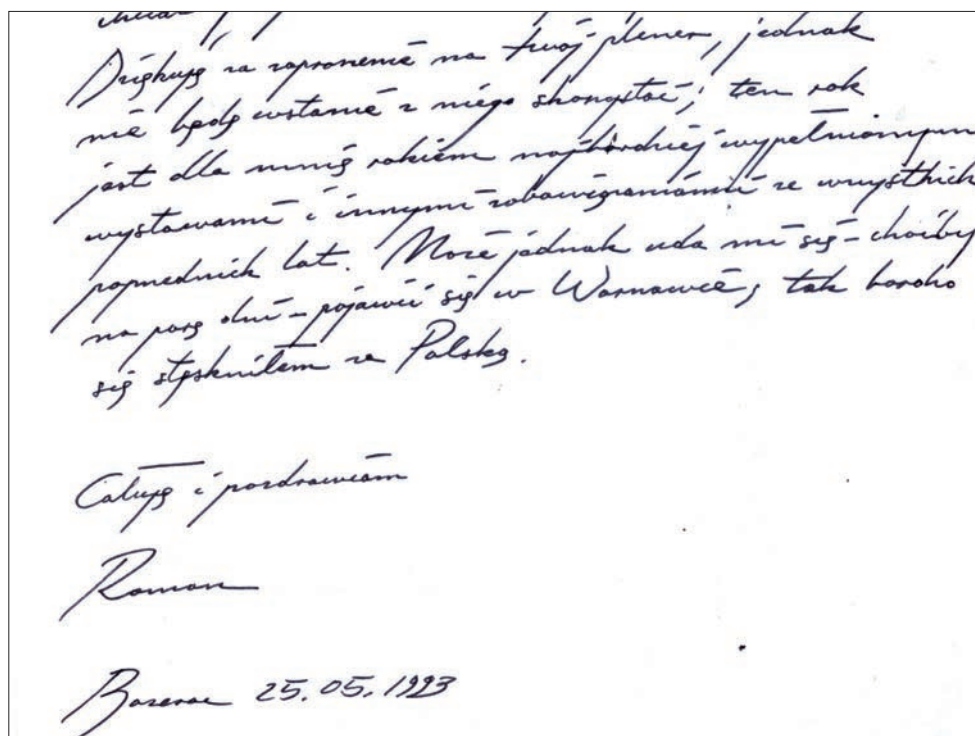 Dziękuję za zaproszenie na twój plener, jednak
nie będę wstanie z niego skorzystać; ten rok
jest dla mnie rokiem najbardziej wypełnionym
wystawami i innymi zobowiązaniami ze wszystkich
poprzednich lat. Może jednak uda mi się – choćby
na parę dni – pojawić się w Warszawie, tak bardzo
się stęskniłem za Polską.
Całuję i pozdrawiam
Roman
25.05.1993